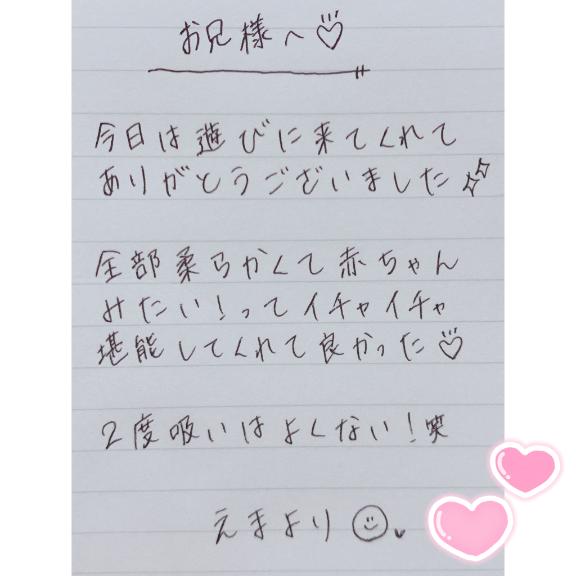 お兄様へ♡
今日は遊びに来てくれて
ありがとうございました✨
全部柔らかくて赤ちゃん
みたい！ってイチャイチャ
堪能してくれて良かった♡
2度吸いはよくない！笑
えまより☺